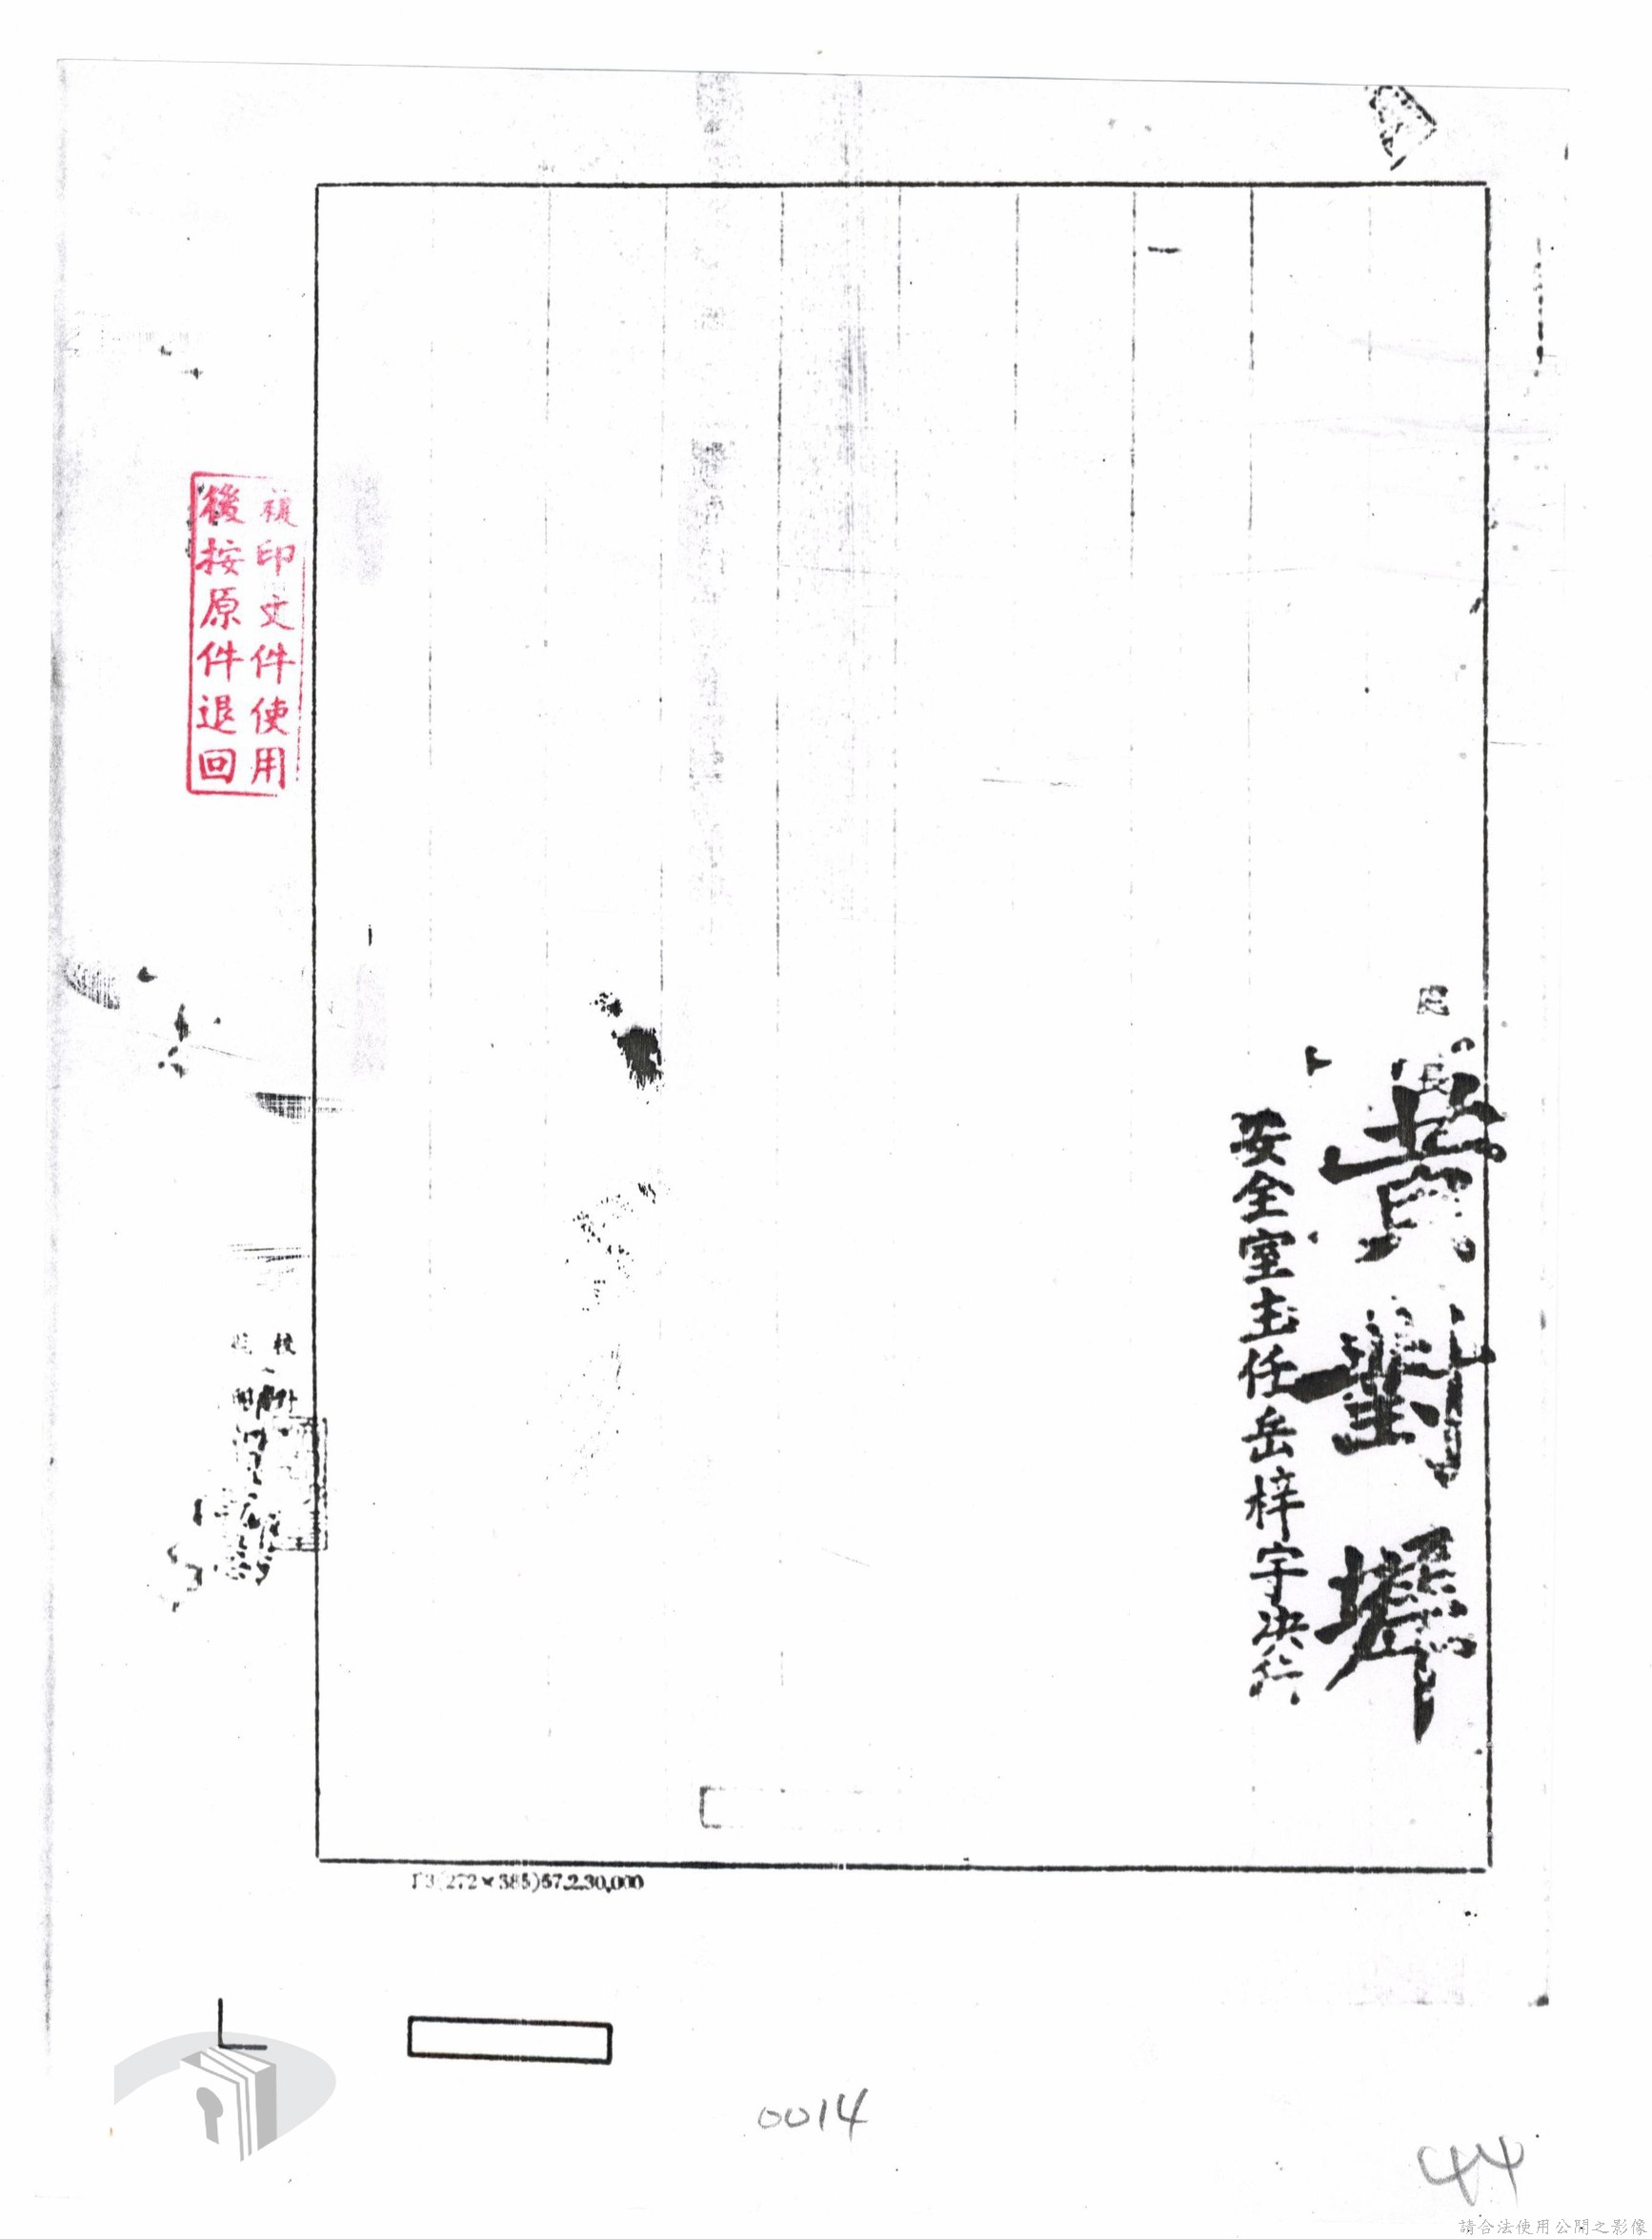 黃對墀
安全室主任岳梓宇決行
複印文件使用
後按原件退回
(272×385)57.2.30,000
0014
44
請合法使用公開之影像